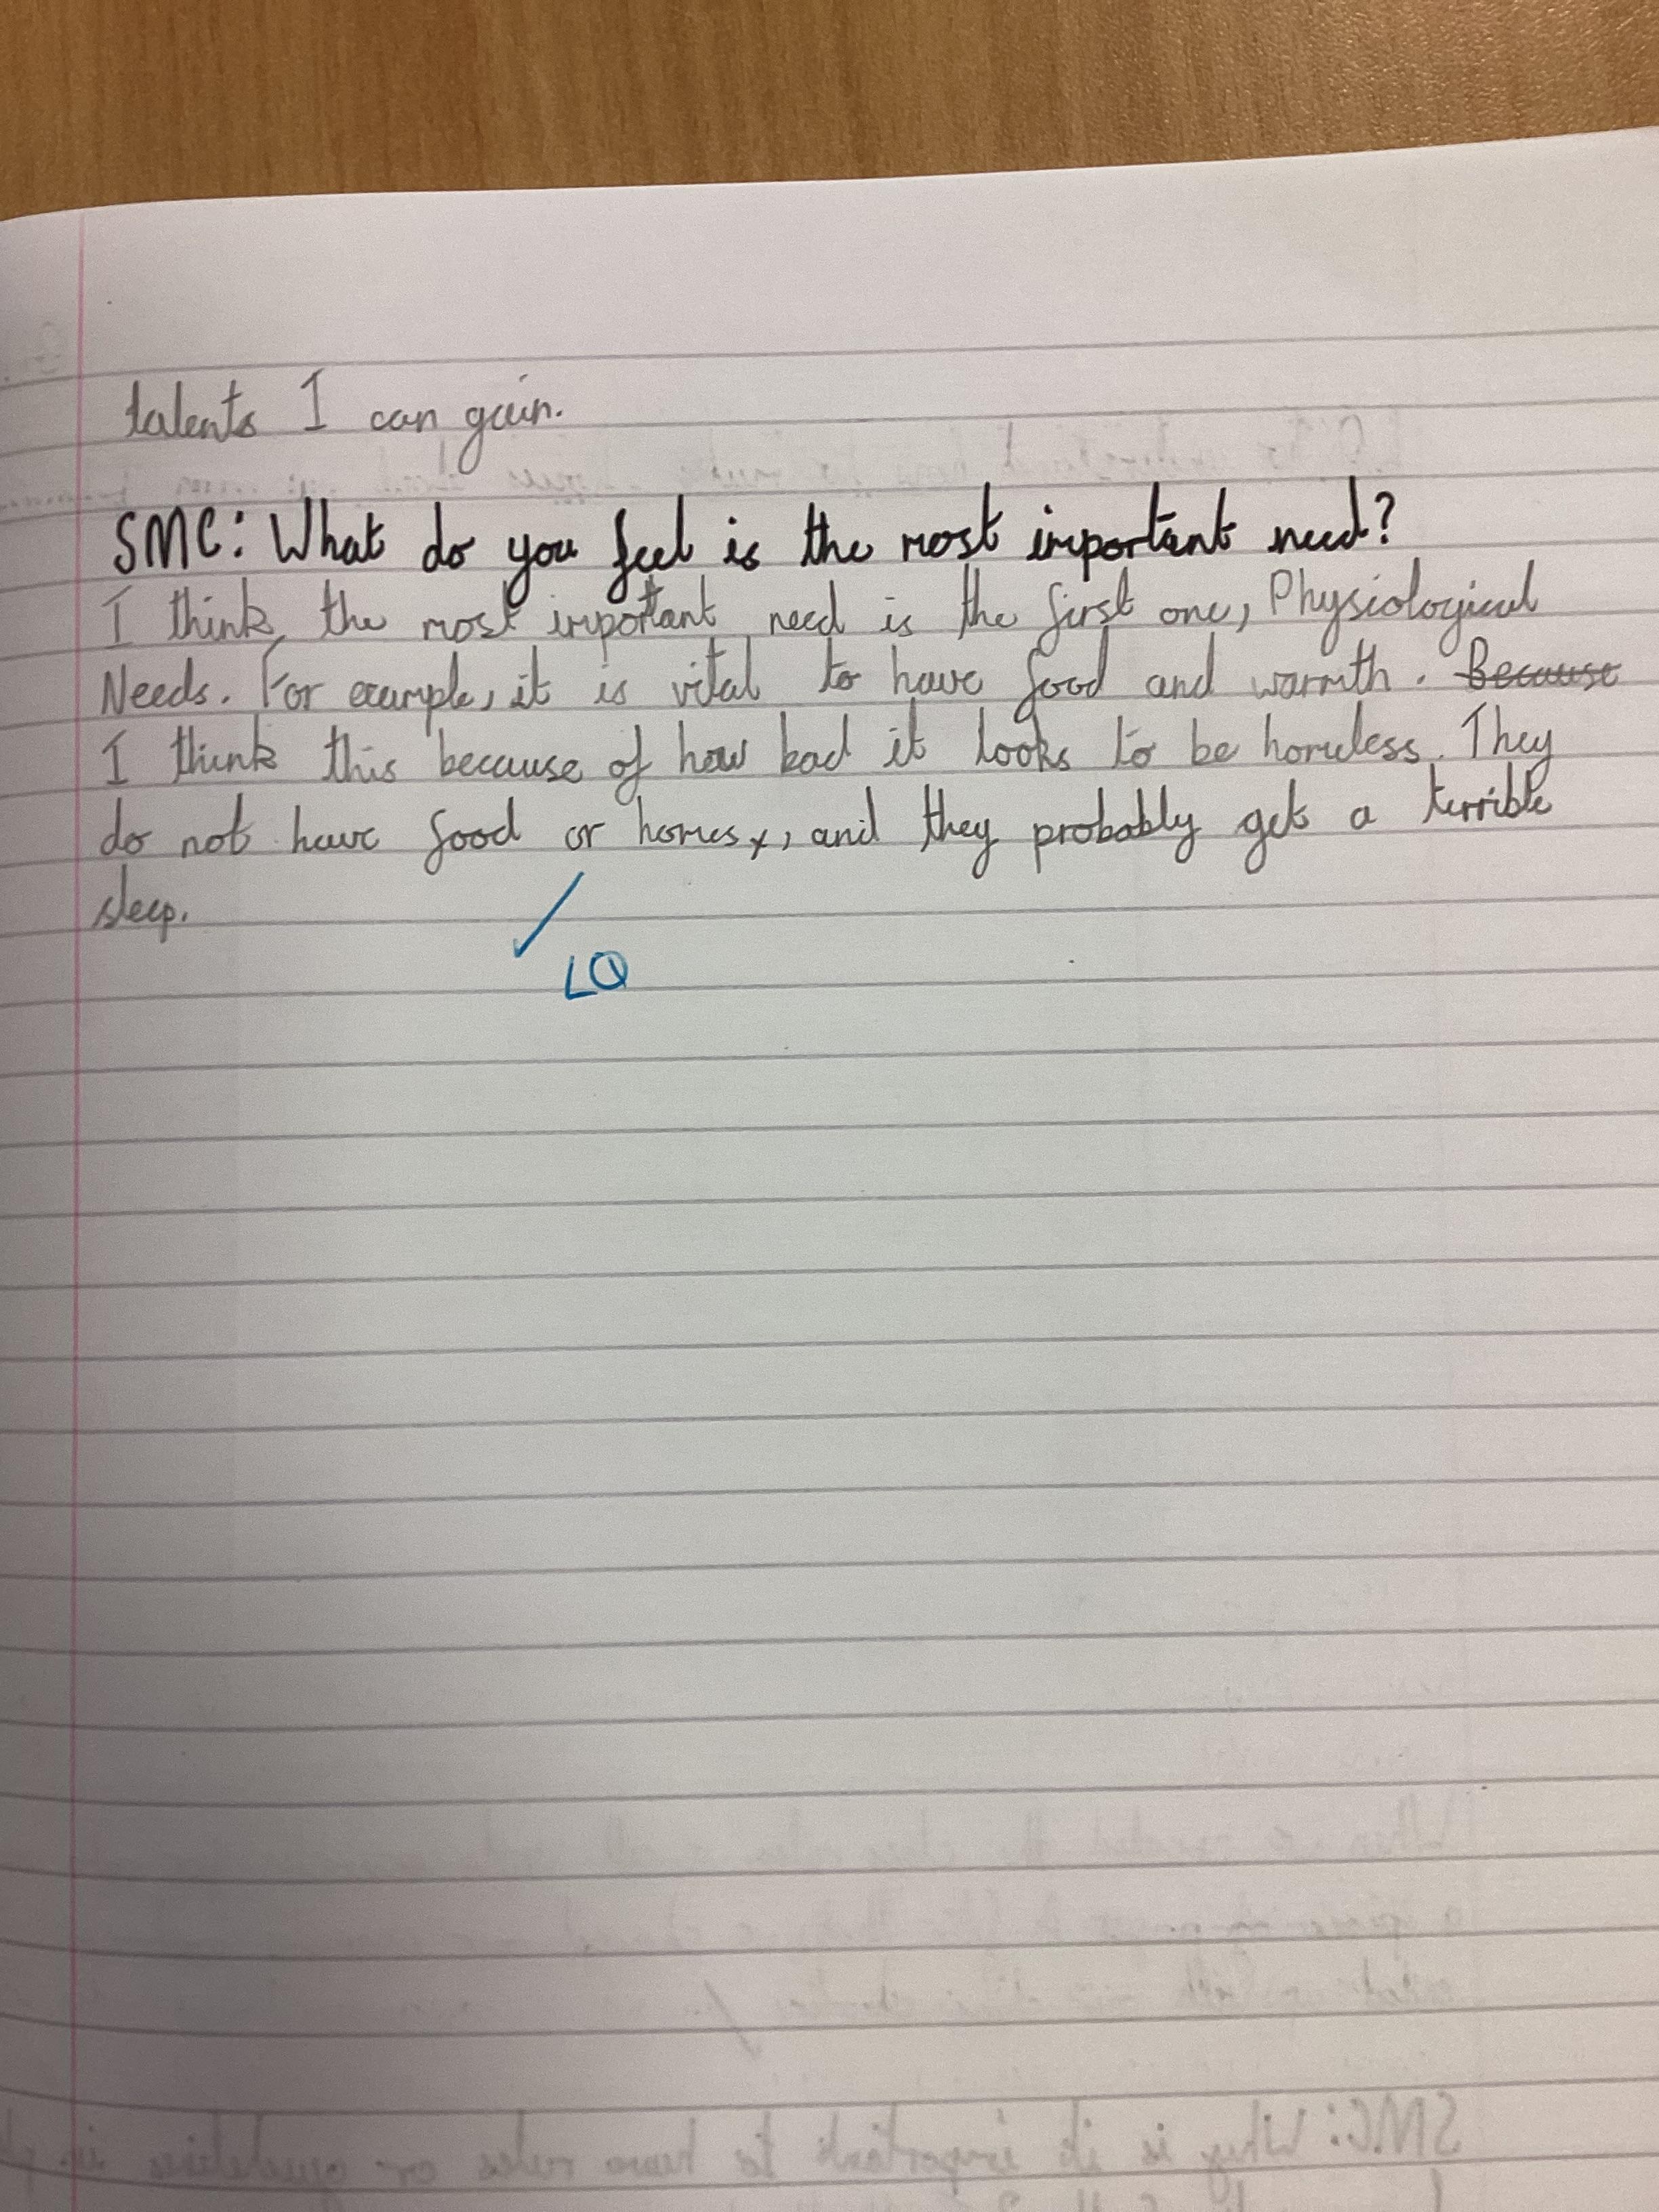 talents I can gain.
SMC: What do you feel is the most important need?
I think the most important need is the first one, Physiological
Needs. For example, it is vital to have food and warmth. Because
I think this because of how bad it looks to be homeless. They
do not have food or homes, and they probably get a terrible
sleep.
LQ
SMC: Why is it important to have rules or guidelines in